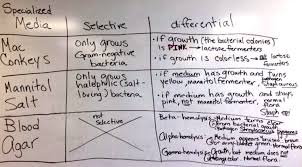 Specialized
Media
Selective
differential
Mac
Conkeys
Only grows
Gram-negative
bacteria
• if growth (the bacterial colonies)
is PINK → lactose fermenters
• if growth is colorless → not lactose
fermenters
Mannitol
Salt
Only grows
halophilic (salt-
loving) bacteria
• if medium has growth and turns
yellow, mannitol fermenter
• if medium has growth and stays
pink, not mannitol fermenter
Blood
Agar
not
Selective
Beta-hemolysis: Medium turns clear
Alpha hemolysis: Medium appears
Gamma hemolysis: Growth, but medium does not